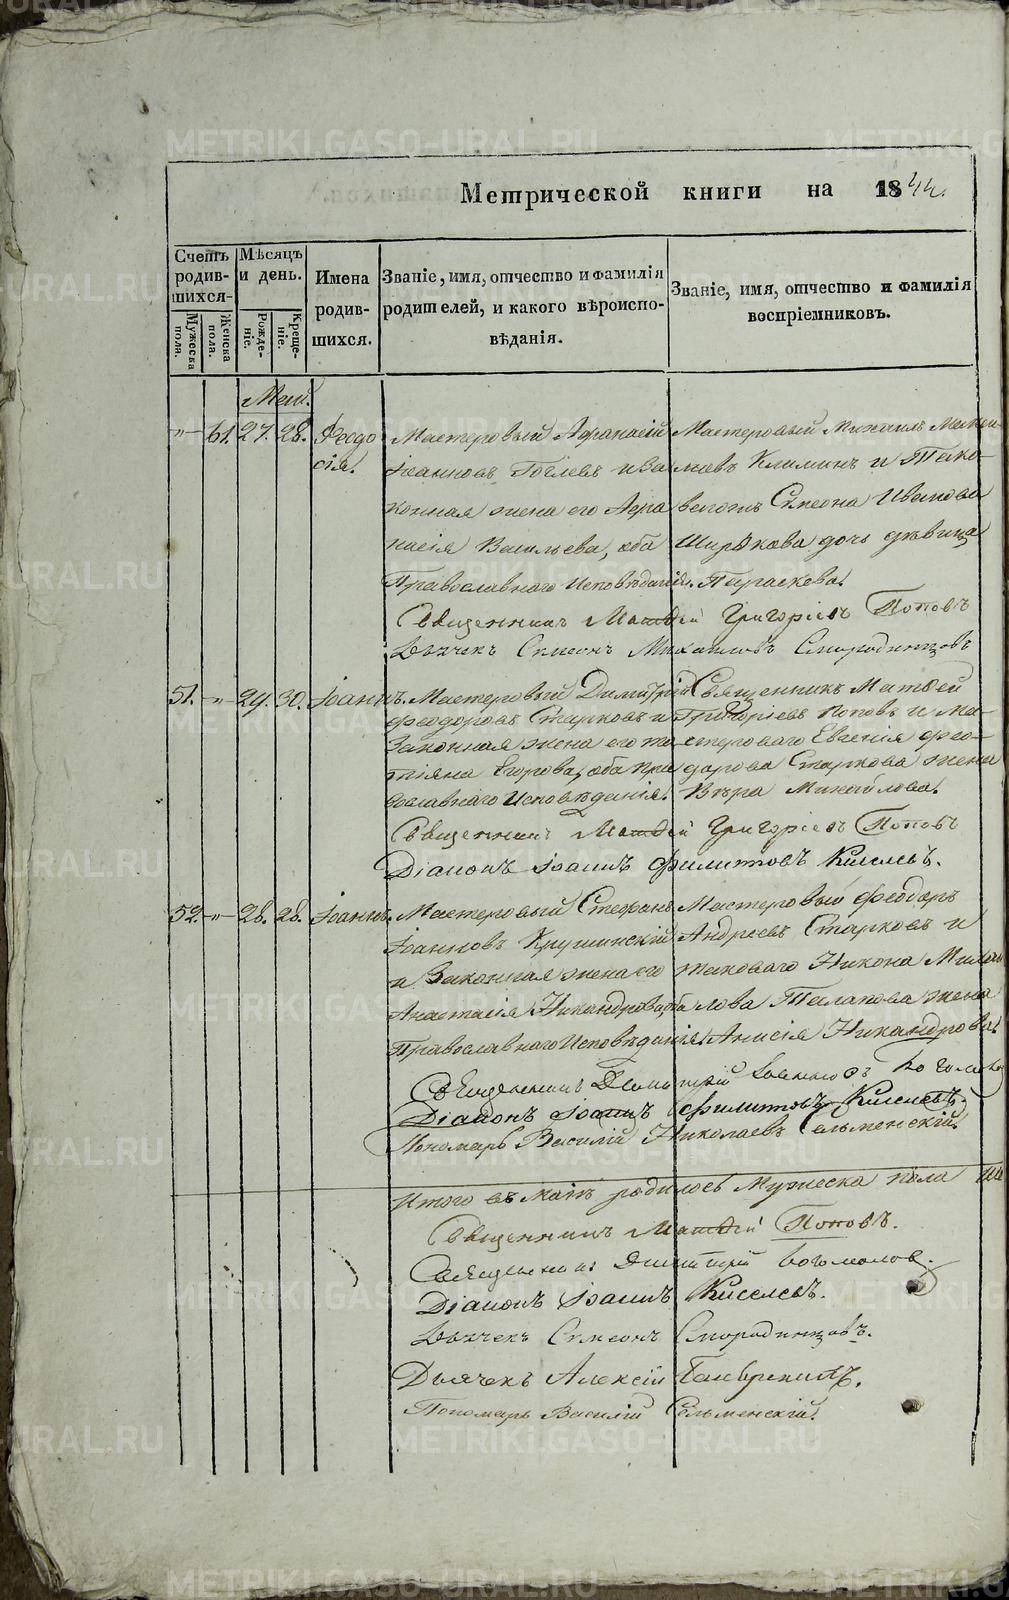 Метрической книги на 1844.
Счетъ родившихся.
Мѣсяцъ и день.
Имена родившихся.
Званіе, имя, отчество и фамилія родителей, и какого вѣроисповѣданія.
Званіе, имя, отчество и фамилія воспріемниковъ.
Мужеска пола.
Женска пола.
Рожденіе.
Крещеніе.
Маи.
"— 61. 27. 28. Феодосія.
Мастеровый Афанасій
Іоанновъ Гоглевъ и за
конная жена его Афа
насія Васильева, оба
Православнаго Исповѣданія.
Мастеровый Михаилъ
Климинъ и Тако-
ваго Симеона Иванова
Ширѣкова дочь дѣвица
Параскева.
Священникъ Матѳей Григоріевъ Поповъ
Дьячекъ Симеонъ Михаиловъ Смородинцовъ
51. —"— 29. 30. Іоаннъ.
Мастеровый Димитрій
Феодоровъ Старковъ и
Законная жена его Та-
тіяна Егорова, оба Пра
вославнаго Исповѣданія.
Священникъ Матѳей
Григоріевъ Поповъ и Ма-
стероваго Евгенія Фео-
дорова Старкова жена
Вѣра Михайлова.
Священникъ Матѳей Григоріевъ Поповъ
Діаконъ Іоаннъ Филитовъ Киселевъ.
52. —"— 28. 28. Іоаннъ.
Мастеровый Стефанъ
Іоанновъ Крушинскій
и Законная жена его
Анастасія Никандрова, оба
Православнаго Исповѣданія.
Мастеровый Феодоръ
Андреевъ Старковъ и
таковаго Никона Михай
лова Талапова жена
Анисія Никандрова.
Священникъ Димитрій Богомолов
Діаконъ Іоаннъ Филитовъ Киселевъ.
Пономарь Василій Николаевъ Сельменскій.
Итого въ маіѣ родилось Мужеска пола
Священникъ Матѳей Поповъ.
Священникъ Димитрій Богомолов.
Діаконъ Іоаннъ Киселевъ.
Дьячекъ Симеонъ Смородинцовъ.
Дьячекъ Алексій
Пономарь Василій Сельменскій.
METRIKI.GASO-URAL.RU